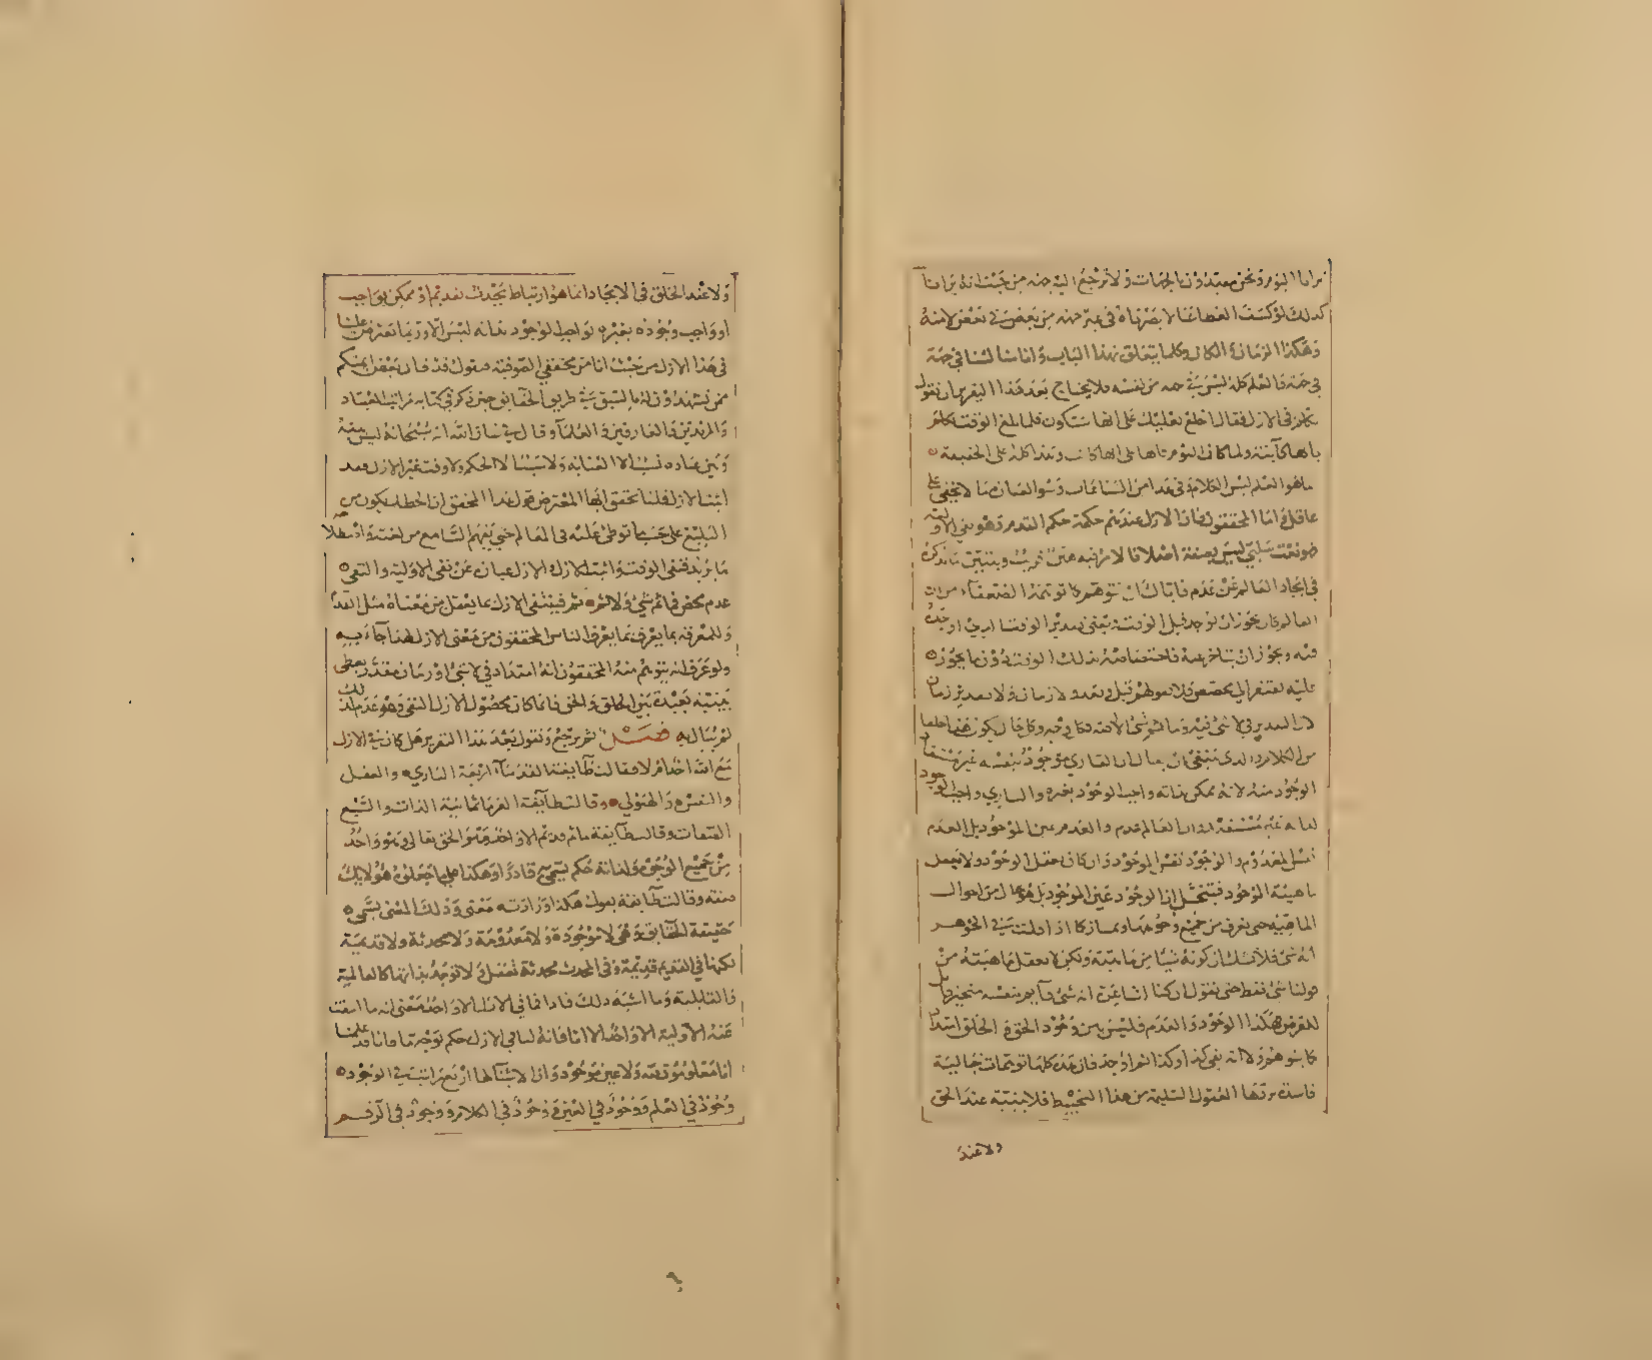 يرانا اليوم ونحن مقيدون بالجهات ولا ترجع اليه جهة من حيث انه يرانا
كذلك لو كشف الغطاء عنا لابصرناه في غير جهة من بعض في بعض لامنه
وهكذا الزمان والمكان وكلما يتعلق بهذا الباب واما سالنا في جهة
في جهة فالعلم كله ليس في جهة من نفسه فلا يحتاج بعد هذا التقرير ان نقول
تكلم في الازل فقال اخلع نعليك على انها ستكون فلما بلغ الوقت كلم
بانها كاينة ولما كان اليوم تلاها على انها كانت وهذا كله على الحقيقة
ما هو العلم ليس الكلام في هذا من السامعات وسوا العبارة مما لا يخفى على
عاقل واما المحققون فان الازل عندهم حكمة حكم القدم وهو نفي الاولية
فهو نعت سلبي ليس بصفة اصلا
في ايجاد العالم عن عدم فاياك ان تتوهم كما توهمه الضعفاء من ان
العالم كان يجوز ان يوجد قبل الوقت يعني تقدير الوقت الذي اوجده
فيه ويجوز ان يتاخر عنه فاختصاصه بذلك الوقت دون ما يجوز
عليه يفتقر الى مخصص فلا يقولهم قبل وبعد ولا زمان ولا تقدير زمان
لان التقدير في لا شيء
من الكلام الذي ينبغي ان يقال ان الباري موجود بنفسه غير مستفاد
الوجود منه لانه ممكن بذاته واجب الوجود بغيره والباري واجب الوجود
لذاته غير مستفاد وان العالم عدم والعدم عين الموجود بل العدم
نفس المعدوم والوجود نفس الموجود وان كان يعقل الوجود ولا تعقل
ماهية الموجود فتتخيل ان الوجود غير الموجود بل هو حال من احوال
الماهية حتى يعرف من جميع وجوهها
انه شيء فلا شك ان كونه شيئا من ماهيته ولكن لا تعقل ماهيته من
قولنا شيء فقط حتى نقول ان كنا انشا عن انه شيء قايم بنفسه متحيز قابل
للعرض هكذا الوجود والعدم فليس بين وجود الحق والخلق امتداد
كما يتوهم ولا انه بقي كذا وكذا ثم اوجد فان هذه كلها توهمات خيالية
فاسدة تردها العقول السليمة من هذا التخبيط فلا بينية عند الحق
ولا عند
ولا عند الخلق في الايجاد انما هو ارتباط محدث بقديم او ممكن بواجب
او واجب وجوده بغيره بواجب الوجود بذاته ليس الا وربما تعترض علينا
في هذا الازل من حيث انا من محققي الصوفية فتقول قد قال بعض ايمتكم
ممن تشهدون له بالسبق في طريق الحقايق حين ذكر في كتابه مراتب العباد
والمريدين والعارفين والعلماء وقال في شان الله انه سبحانه ليس بينه
وبين عباده نسب الا العناية ولا سبب الا الحكم ولا وقت غير الازل فقد
اثبت الازل قلنا تحقق ايها المعترض قول هذا المحقق ان الخطاب يكون من جهة
التبليغ على حسب ما توطى عليه في العالم حتى يفهم السامع من لغته واصطلاحه
ما يريد فنفى الوقت واثبت الازل والازل عبارة عن نفي الاولية والنفي
عدم محض فما ثم شيء ولا ثم ثم فينتفي الازل بما يعقل من معناه مثل القدم
وللمعرفة بما يعرف بما يعرف الناس المحققون من معنى الازل لهذا جاء به
ولو عرف انه يتوهم منه المحققون انه امتداد في لا شيء او زمان مقدر يعطى
بينيته بعيدة بين الخلق والحق فانما كان محصول الازل النفي وهو عدم لذلك
لم يبال به فصل ثم نرجع ونقول بعد هذا التقرير هل كان في الازل
مع الله احد ام لا فقالت طايفة القدماء اربعة الباري والعقل
والنفس والهيولى وقالت طايفة القدماء ثمانية الذات والسبع
الصفات وقالت طايفة ما ثم قديم الا واحد وهو الحق تعالى وهو واحد
من جميع الوجوه ولذاته حكم يسمى به قادرا وهكذا كل ما جعلوه هولايك
صفة وقالت طايفة بقول هكذا وزادت معنى وذلك المعنى يسمى
حقيقة الحقايق وهي لا موجودة ولا معدومة ولا محدثة ولا قديمة
لكنها في القديم قديمة وفي المحدث محدثة تعقل ولا توجد بذاتها كالعالمية
والقايلية وما اشبه ذلك فاذا فما في الازل الا واحد معنى انه ما انتفت
عنه الاولية الا واحد
انا معلومون له ولا عين موجودة وان الاشياء لها اربع مراتب في الوجود
وجود في العلم ووجود في العين ووجود في الكلام ووجود في الرقم